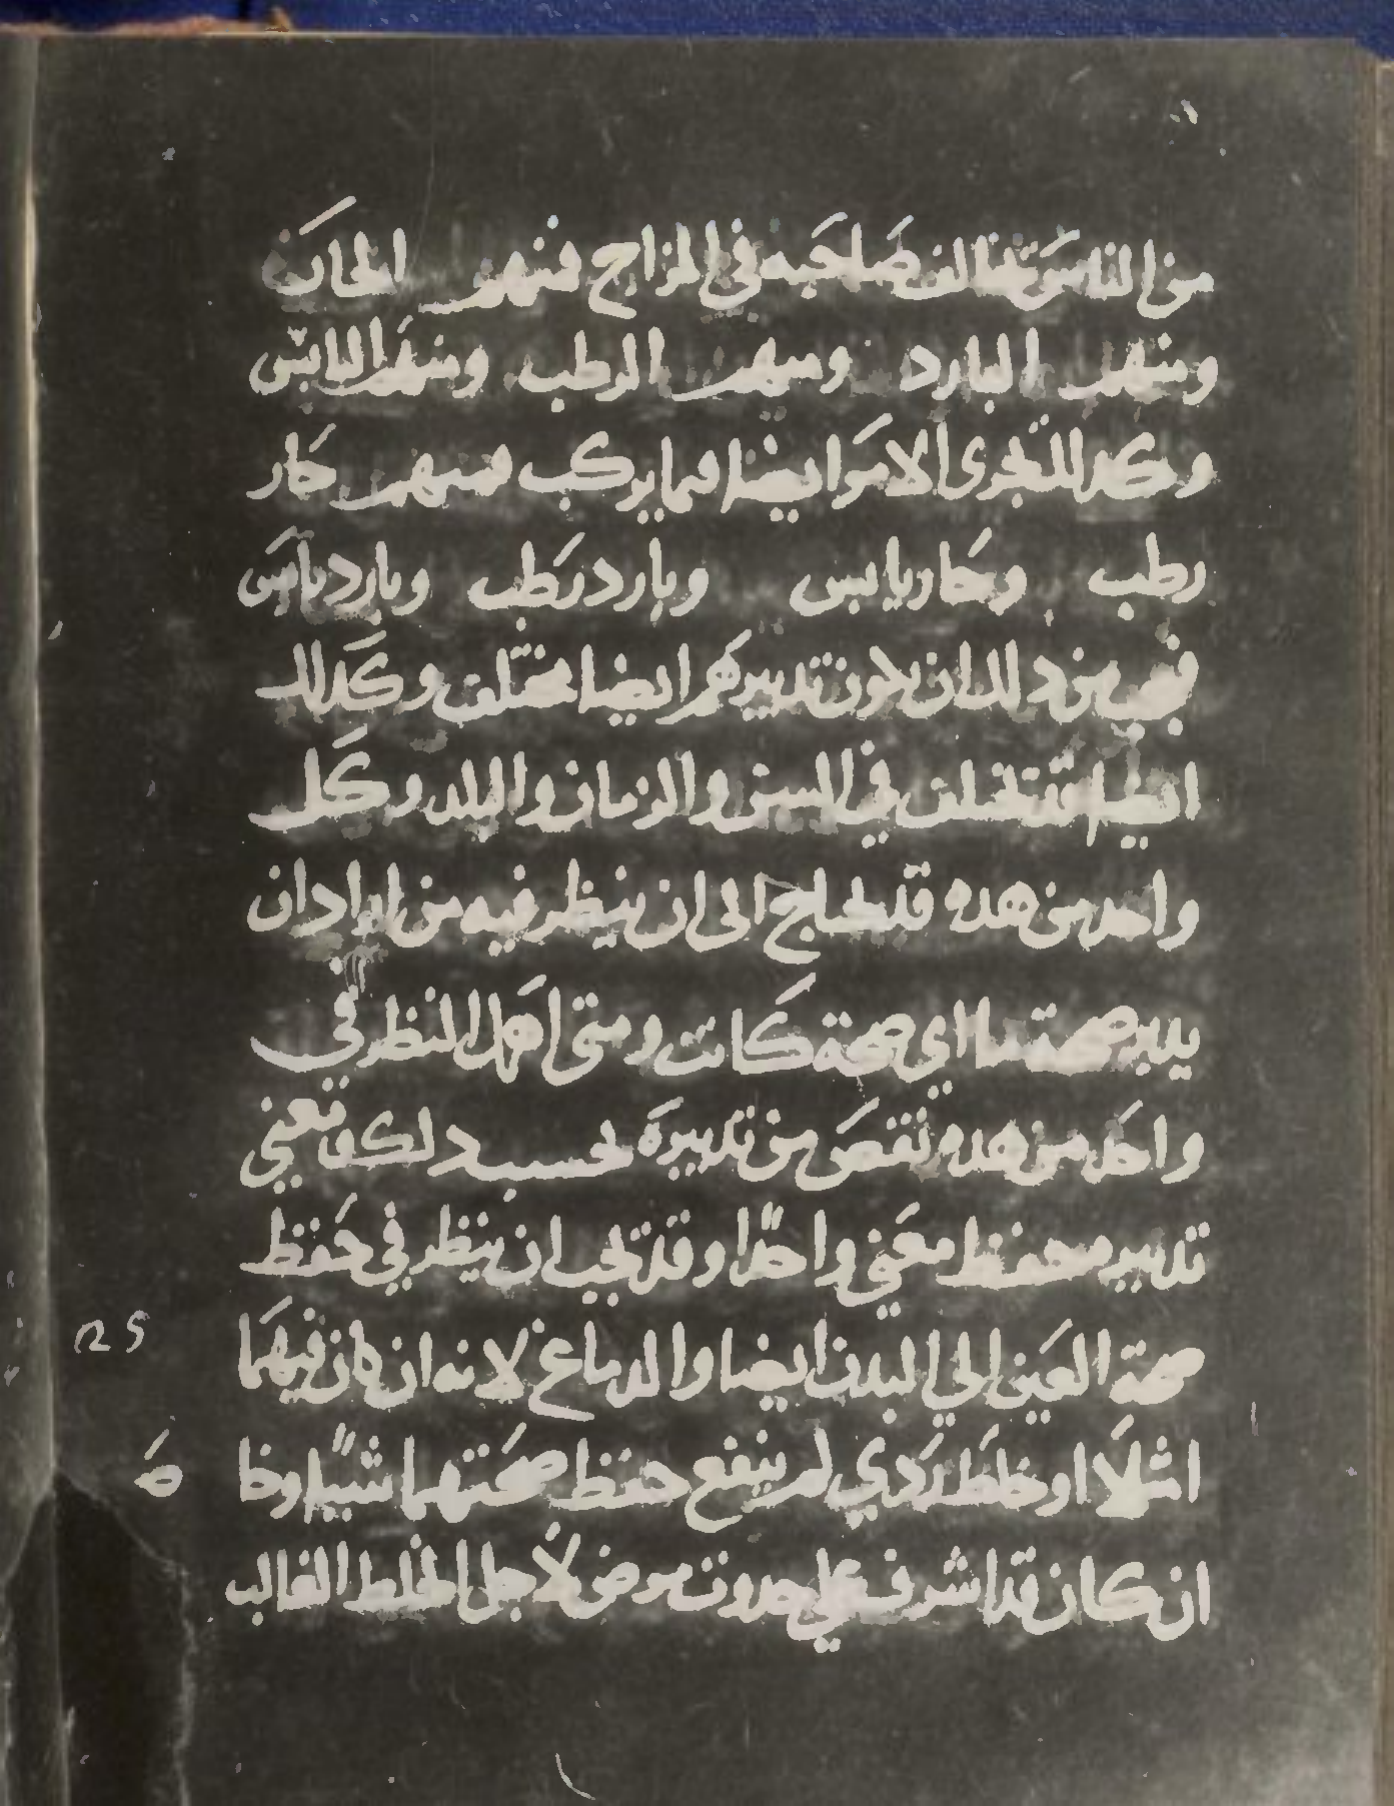 من الناس تخالف صاحبه في المزاج فمنهم الحار
ومنهم البارد ومنهم الرطب ومنهم اليابس
وكدلك تجرى الامر ايضا فيما يركب فمنهم حار
رطب وحار يابس وبارد رطب وبارد يابس
فيجب من دلك ان يكون تدبيرهم ايضا مختلف وكدلك
ايضا قد تختلف في السن والزمان والبلد وكل
واحد من هده قد يحتاج الى ان ينظر فيه من اراد ان
يدبر صحة ما اي صحة كانت ومتى اهمل النظر في
واحد من هده نقص من تدبيره بحسب دلك ومعني
تدبير وحفظ معني واحدا وقد يجب ان ينظر في حفظ
صحة العين الي البدن ايضا والدماغ لانه ان كان فيهما
امتلا او خلط ردي لم ينفع حفظ صحتهما شيا وخا
ان كان قد اشرف علي حدوث مرض لاجل الخلط الغالب
125
صة